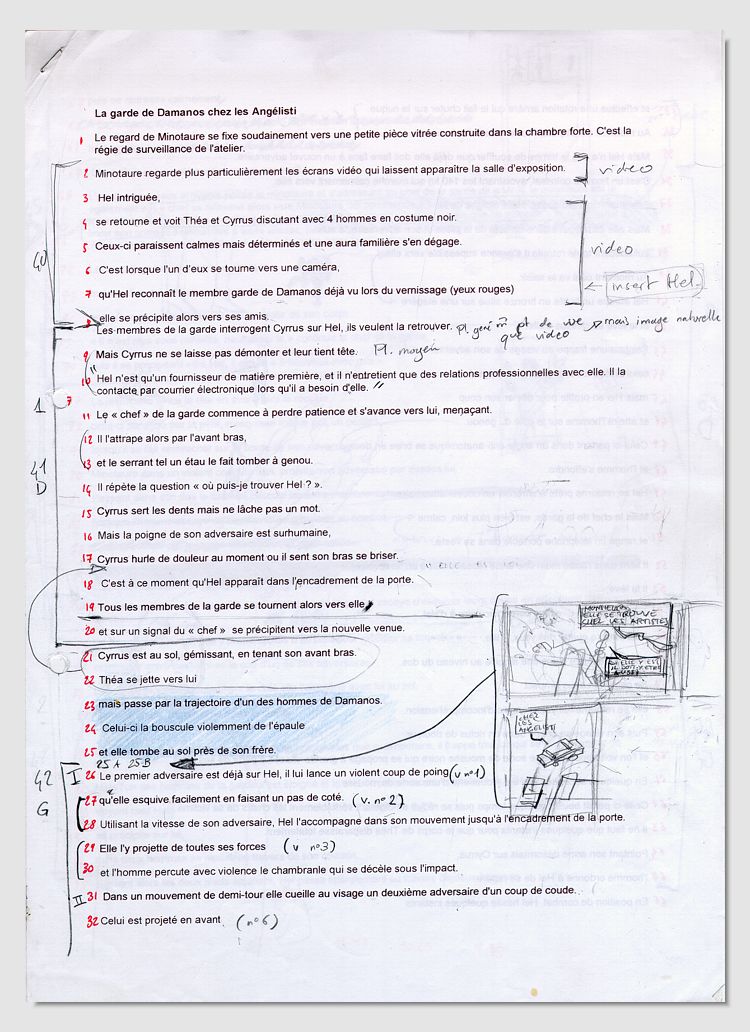 La garde de Damanos chez les Angélisti
1 Le regard de Minotaure se fixe soudainement vers une petite pièce vitrée construite dans la chambre forte. C'est la
régie de surveillance de l'atelier.
2 Minotaure regarde plus particulièrement les écrans vidéo qui laissent apparaître la salle d'exposition. video
3 Hel intriguée,
4 se retourne et voit Théa et Cyrrus discutant avec 4 hommes en costume noir.
5 Ceux-ci paraissent calmes mais déterminés et une aura familière s'en dégage. video
40
6 C'est lorsque l'un d'eux se tourne vers une caméra,
7 qu'Hel reconnaît le membre garde de Damanos déjà vu lors du vernissage (yeux rouges) ← insert Hel.
8 elle se précipite alors vers ses amis.
Les membres de la garde interrogent Cyrrus sur Hel, ils veulent la retrouver. Pl. géné m̂ pt de vue mais image naturelle
que video
9 Mais Cyrrus ne se laisse pas démonter et leur tient tête. Pl. moyen
10 "Hel n'est qu'un fournisseur de matière première, et il n'entretient que des relations professionnelles avec elle. Il la
contacte par courrier électronique lors qu'il a besoin d'elle. "
1 7
11 Le « chef » de la garde commence à perdre patience et s'avance vers lui, menaçant.
12 Il l'attrape alors par l'avant bras,
13 et le serrant tel un étau le fait tomber à genou.
41
D
14 Il répète la question « où puis-je trouver Hel ? ».
15 Cyrrus sert les dents mais ne lâche pas un mot.
16 Mais la poigne de son adversaire est surhumaine,
17 Cyrrus hurle de douleur au moment ou il sent son bras se briser.
18 C'est à ce moment qu'Hel apparaît dans l'encadrement de la porte.
19 Tous les membres de la garde se tournent alors vers elle
20 et sur un signal du « chef » se précipitent vers la nouvelle venue.
MONSIEUR
ELLE SE TROUVE
CHEZ LES ARTISTES
21 Cyrrus est au sol, gémissant, en tenant son avant bras.
22 Théa se jette vers lui
23 mais passe par la trajectoire d'un des hommes de Damanos.
24 Celui-ci la bouscule violemment de l'épaule
25 et elle tombe au sol près de son frère.
CHEZ
LES
ANGELISTI
25 A 25 B
42
G
I 26 Le premier adversaire est déjà sur Hel, il lui lance un violent coup de poing (v n°1)
27 qu'elle esquive facilement en faisant un pas de coté. (v. n°2)
28 Utilisant la vitesse de son adversaire, Hel l'accompagne dans son mouvement jusqu'à l'encadrement de la porte.
29 Elle l'y projette de toutes ses forces (v n°3)
30 et l'homme percute avec violence le chambranle qui se décèle sous l'impact.
II 31 Dans un mouvement de demi-tour elle cueille au visage un deuxième adversaire d'un coup de coude.
32 Celui est projeté en avant (n°6)